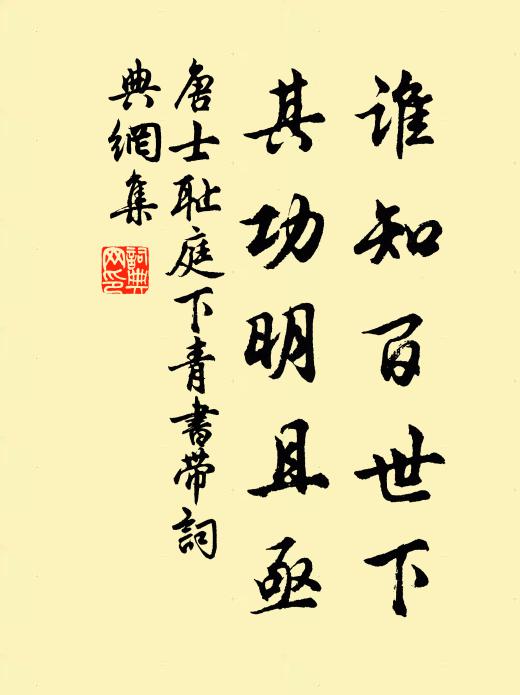 誰知百世下
其功明且亟
唐士耻庭下青書帶詞
典網集
詞典
网印